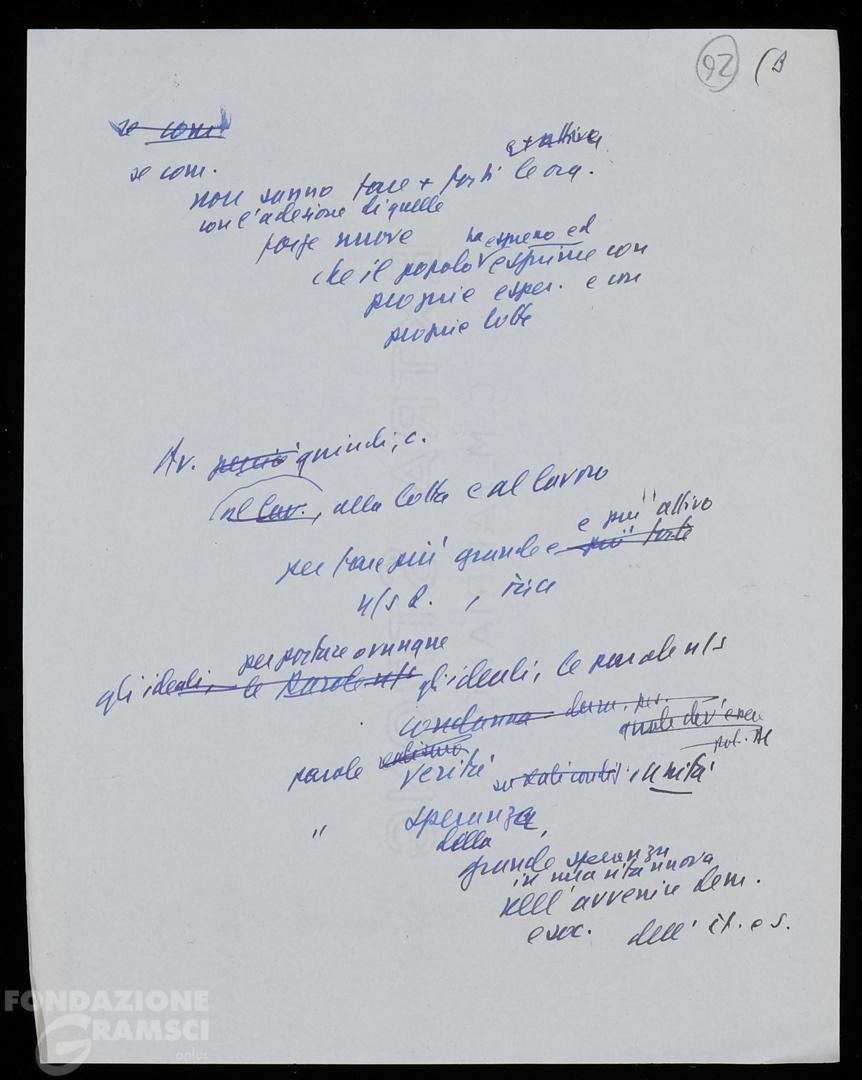 92 (B
se com
se com.
e + attiva
non sanno fare + forti le org.
con l'adesione di quelle
forze nuove
ha espresso ed
che il popolo esprime con
proprie esper. e con
proprie lotte
Av. perciò quindi, c.
al lav., alla lotta e al lavoro
e più attivo
per fare più grande e più forte
n/s P.
per portare ovunque
gli ideali, le parole n/s gli ideali, le parole n/s
condanna dem. per.
quale dev'essere
parole verità unità
" speranza,
della
grande speranza
in una vita nuova
nell'avvenire dem.
e soc. dell' it. e s.
FONDAZIONE
GRAMSCI
onlus